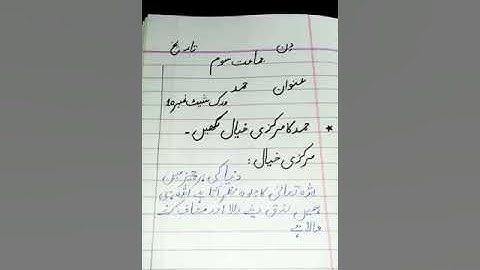 دن تاریخ
جماعت سوم
عنوان حمد
ورک شیٹ نمبر
حمد کا مرکزی خیال لکھیں۔
مرکزی خیال:
دنیا کی ہر چیز میں
اللہ تعالیٰ کا جلوہ نظر آتا ہے اللہ ہی
ہمیں رزق دینے والا اور معاف کرنے
والا ہے